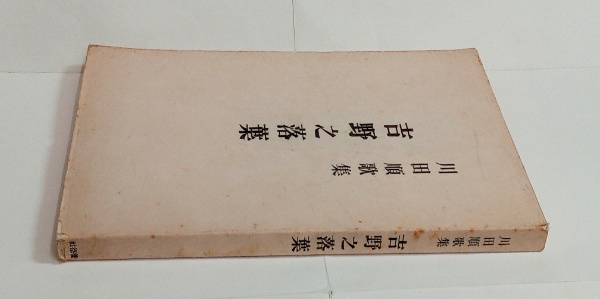 吉野之落葉
川田順歌集
川田順歌集
吉野之落葉